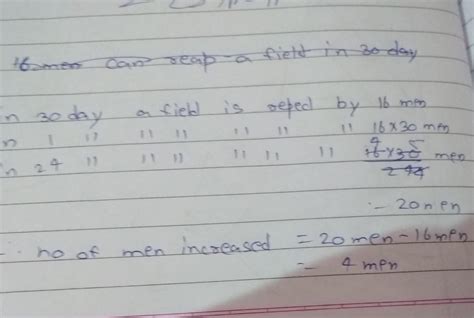 16 men can reap a field in 30 day
n 30 day a field is reped by 16 men
n 1 " " " " " " 16×30 men
n 24 " " " " " " 16×30 men
4 5
24
:- 20 men
∴ no of men increased = 20 men - 16 men
= 4 men